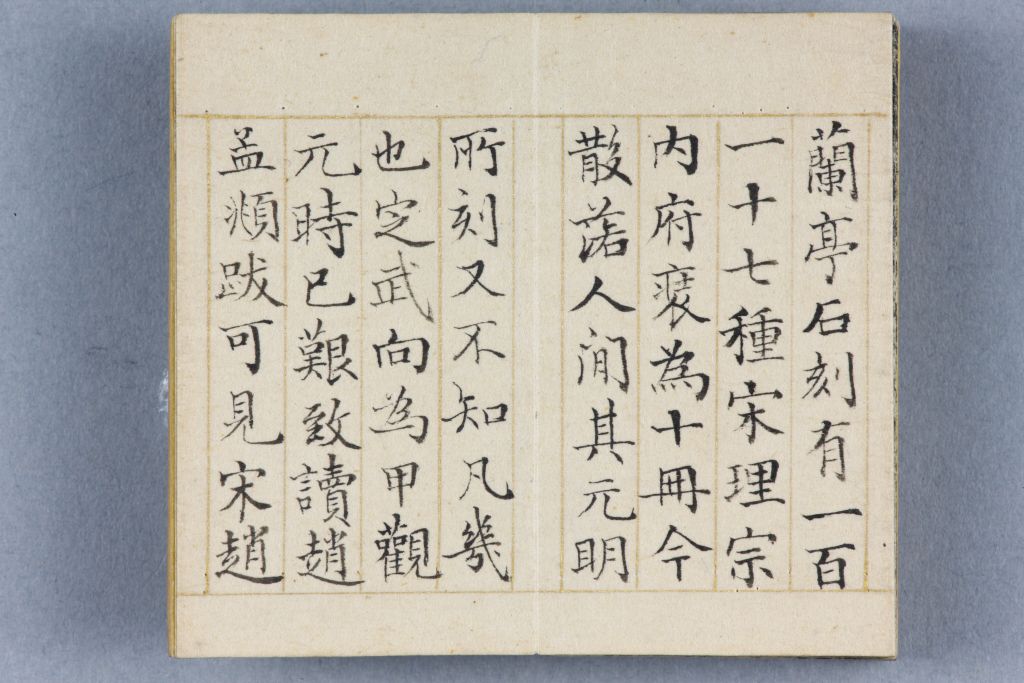 蘭亭石刻有一百
一十七種宋理宗
内府裒為十冊今
散落人間其元明
所刻又不知凡幾
也定武向為甲觀
元時已艱致讀趙
孟頫跋可見宋趙